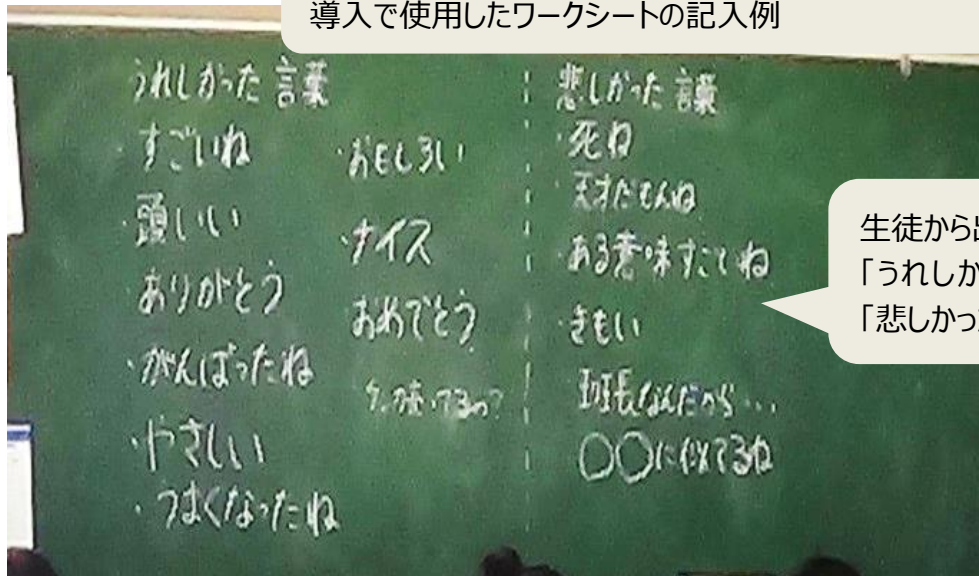 導入で使用したワークシートの記入例
うれしかった言葉
・すごいね
・頭いい
・ありがとう
・がんばったね
・やさしい
・うまくなったね
・おもしろい
・ナイス
おめでとう
悲しかった言葉
・死ね
・天才だもんね
・ある意味すごいね
・きもい
班長なんだから…
○○に似てるね
生徒から
「うれしか
「悲しかっ